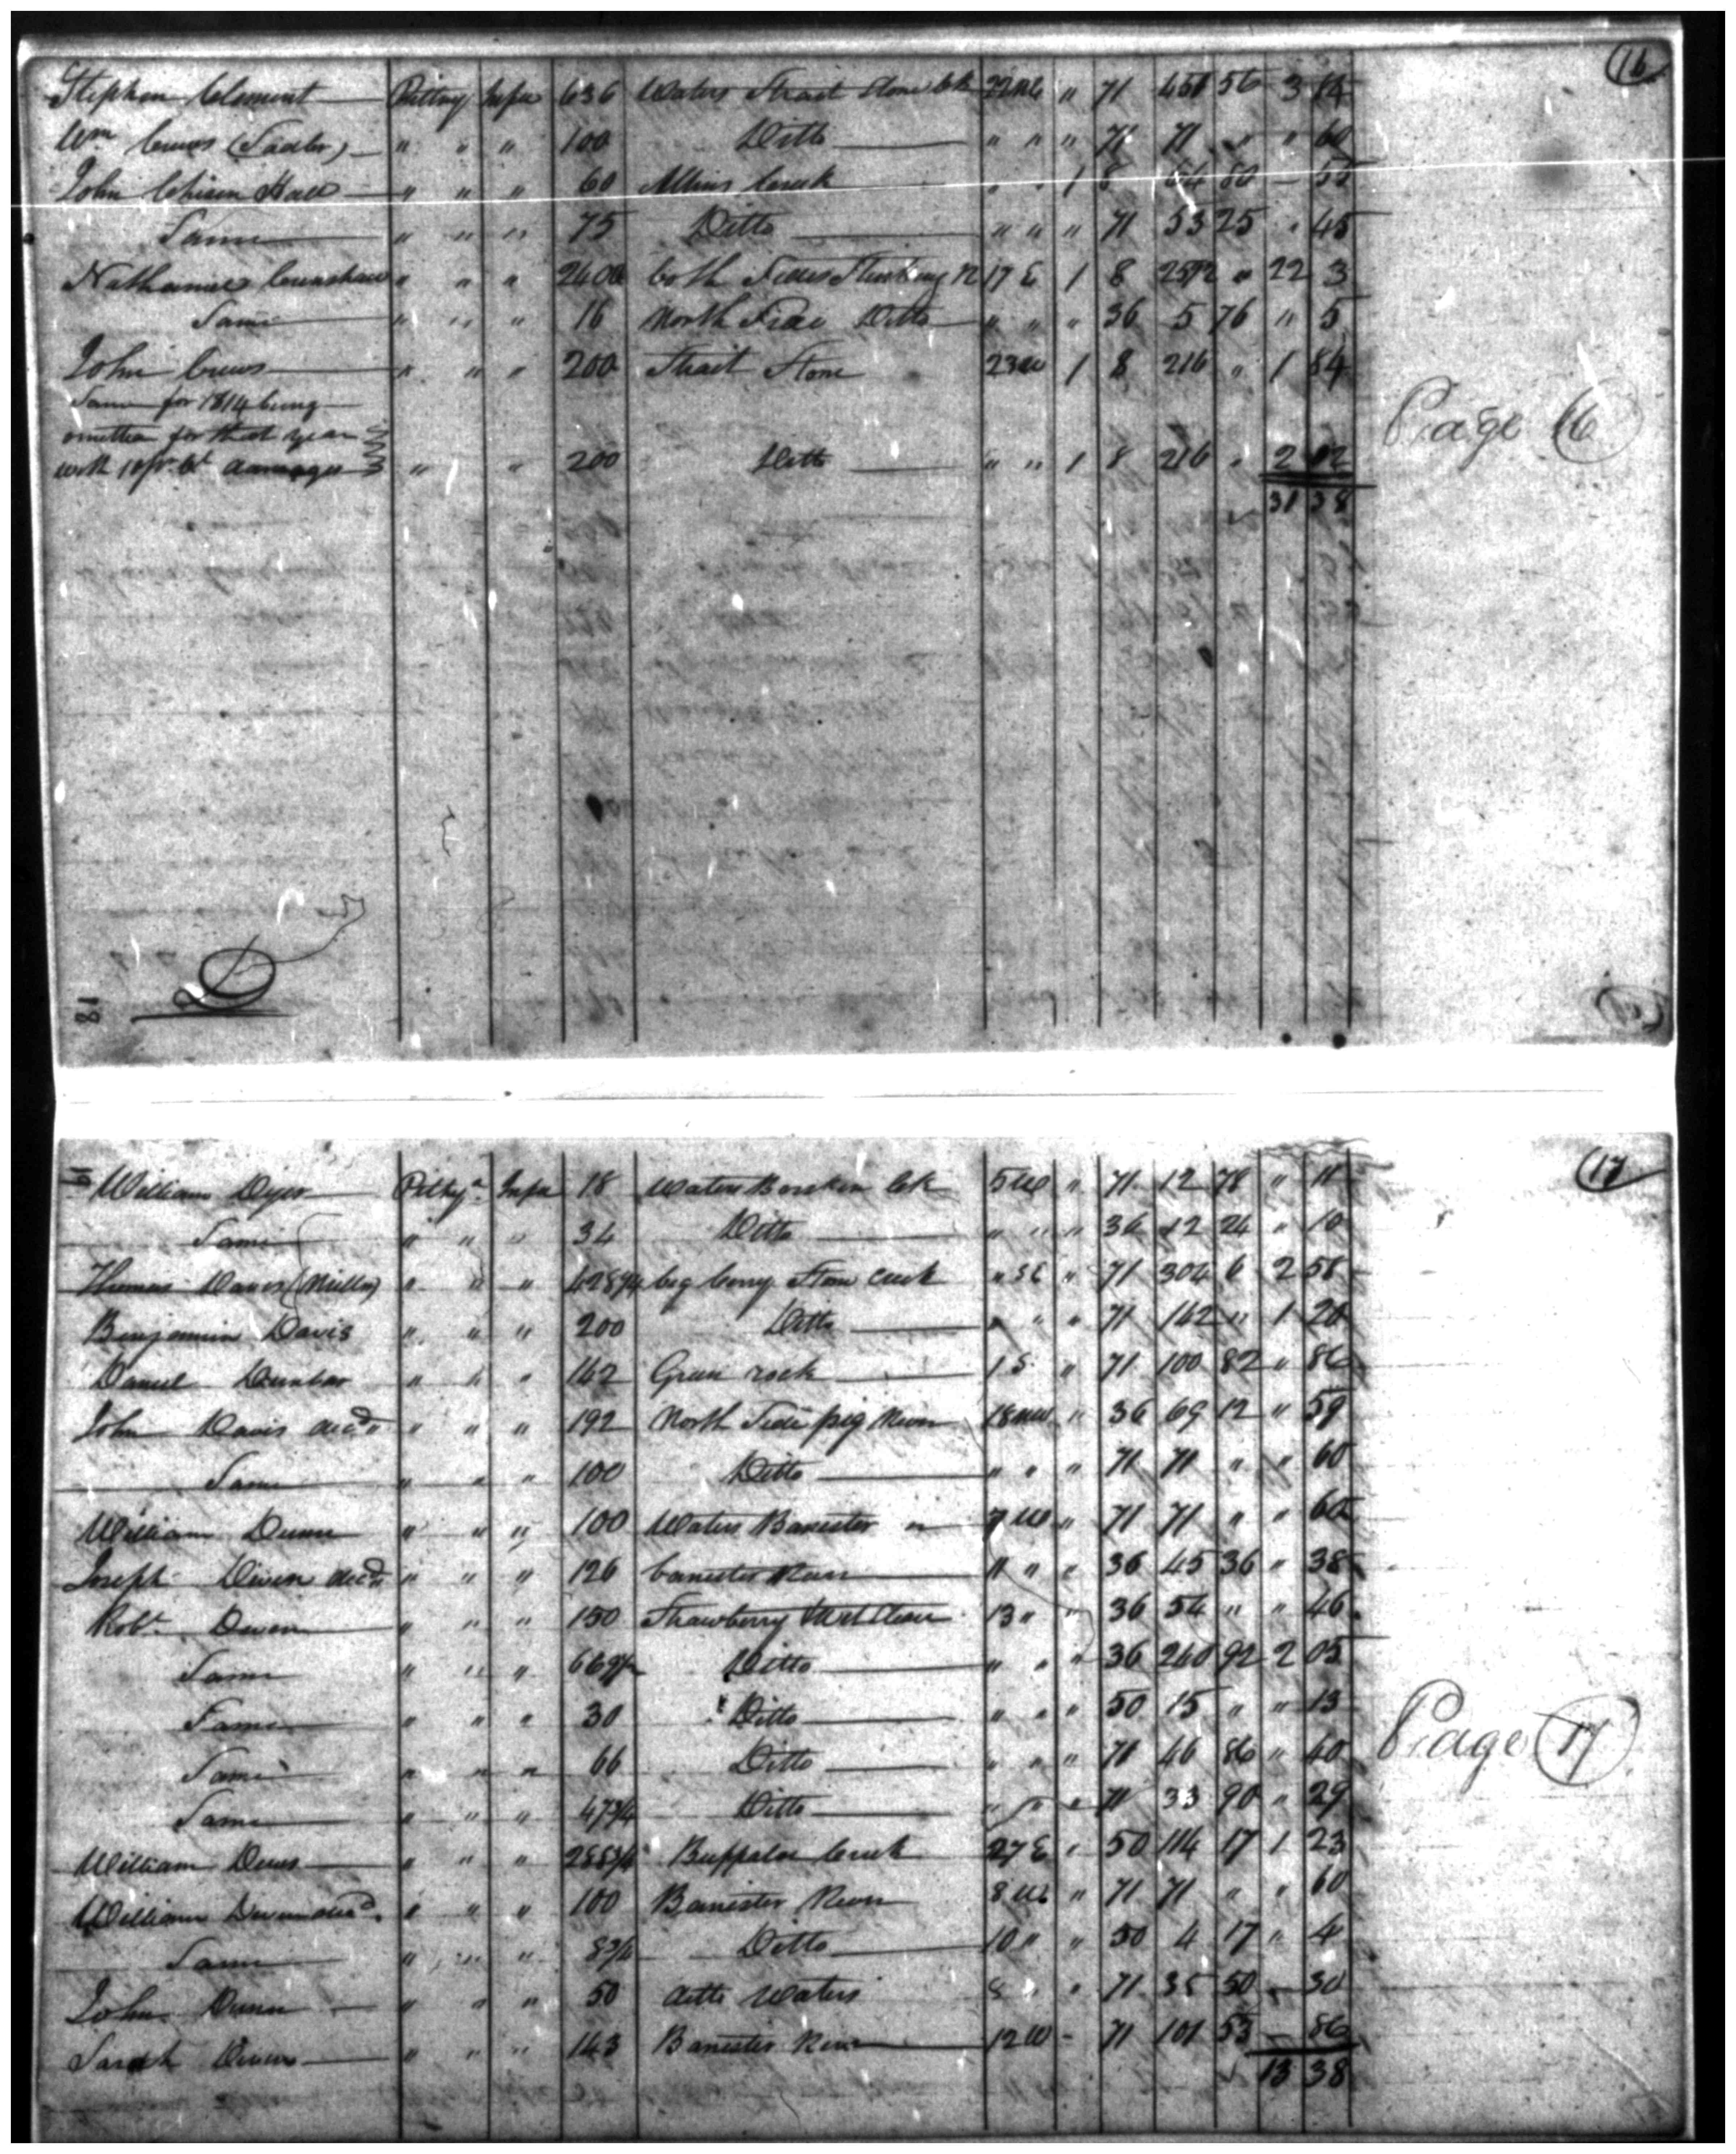 16
Stephen Clement Pittsy Infee 636 Waters Strait Stone Ck 22 NE " 71 451 56 3 14
Wm Crews (Sadler) " " " 100 Ditto " " " 71 71 " " 60
John Chisem Hall " " " 60 Allins Creek " " 1 8 64 80 55
Same " " " 75 Ditto " " " 71 53 25 " 45
Nathaniel Crenshaw " " " 2400 both Sides Stinking R 17 E 1 8 2592 " 22 3
Same " " " 16 North Side Ditto " " " 36 5 76 " 5
John Crews " " " 200 Strait Stone 23 1 8 216 " 1 84
Same for 1814 being
omitted for that year
with 10 pr Ct damages " " 200 Ditto " " 1 8 216 " 2 02
31 38
Page 16
18
17
William Dyer Pittsya Infee 18 Waters Ck 5 W " 71 12 78 " 11
Same " " " 34 Ditto " " " 36 12 24 " 10
Thomas Davis (Miller) " " " 428 3/4 big Cerry Stone Creek " SE " 71 304 6 2 58
Benjamin Davis " " " 200 Ditto " " " 71 142 " 1 20
Daniel Dunbar " " " 142 Green rock 1 S " 71 100 82 " 86
John Davis decd " " " 192 North Side pig River 18 NW " 36 69 12 " 59
Same " " " 100 Ditto " " " 71 71 " " 60
William Dunn " " " 100 Waters Banister 7 W " 71 71 " " 60
Joseph Deven decd " " " 126 banister River " " " 36 45 36 " 38
Robt Deven " " " 150 Strawberry 13 " " 36 54 " " 46
Same " " " Ditto " " " 36 240 92 2 05
Same " " " 30 Ditto " " " 50 15 " " 13
Same " " " 66 Ditto " " " 71 46 86 " 40
Same " " " 47 3/4 Ditto " " " 71 33 90 " 29
William Dews " " " 288 3/4 Buffaloe Creek 27 E " 50 144 17 1 23
William Deven decd " " " 100 Banister River 8 W " 71 71 " " 60
Same " " " 8 3/4 Ditto 10 " " 50 4 17 " 4
John Dunn " " " 50 ditto Waters 8 " " 71 35 50 30
Sarah Deven " " " 143 Banister River 12 W 71 101 53 86
13 38
Page 17